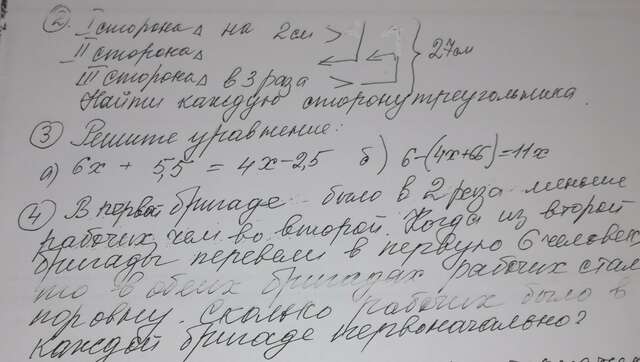 ② I сторона Δ на 2см >
II сторона Δ
III сторона Δ в 3 раза > } 27см
Найти каждую сторону треугольника.
③ Решите уравнение:
а) 6х + 5,5 = 4х-2,5 б) 6-(4х+66)=11х
④ В первой бригаде было в 2 раза меньше
рабочих, чем во второй. Когда из второй
бригады перевели в первую 6 человек
то в обеих бригадах рабочих стал
поровну. Сколько рабочих было в
каждой бригаде первоначально?